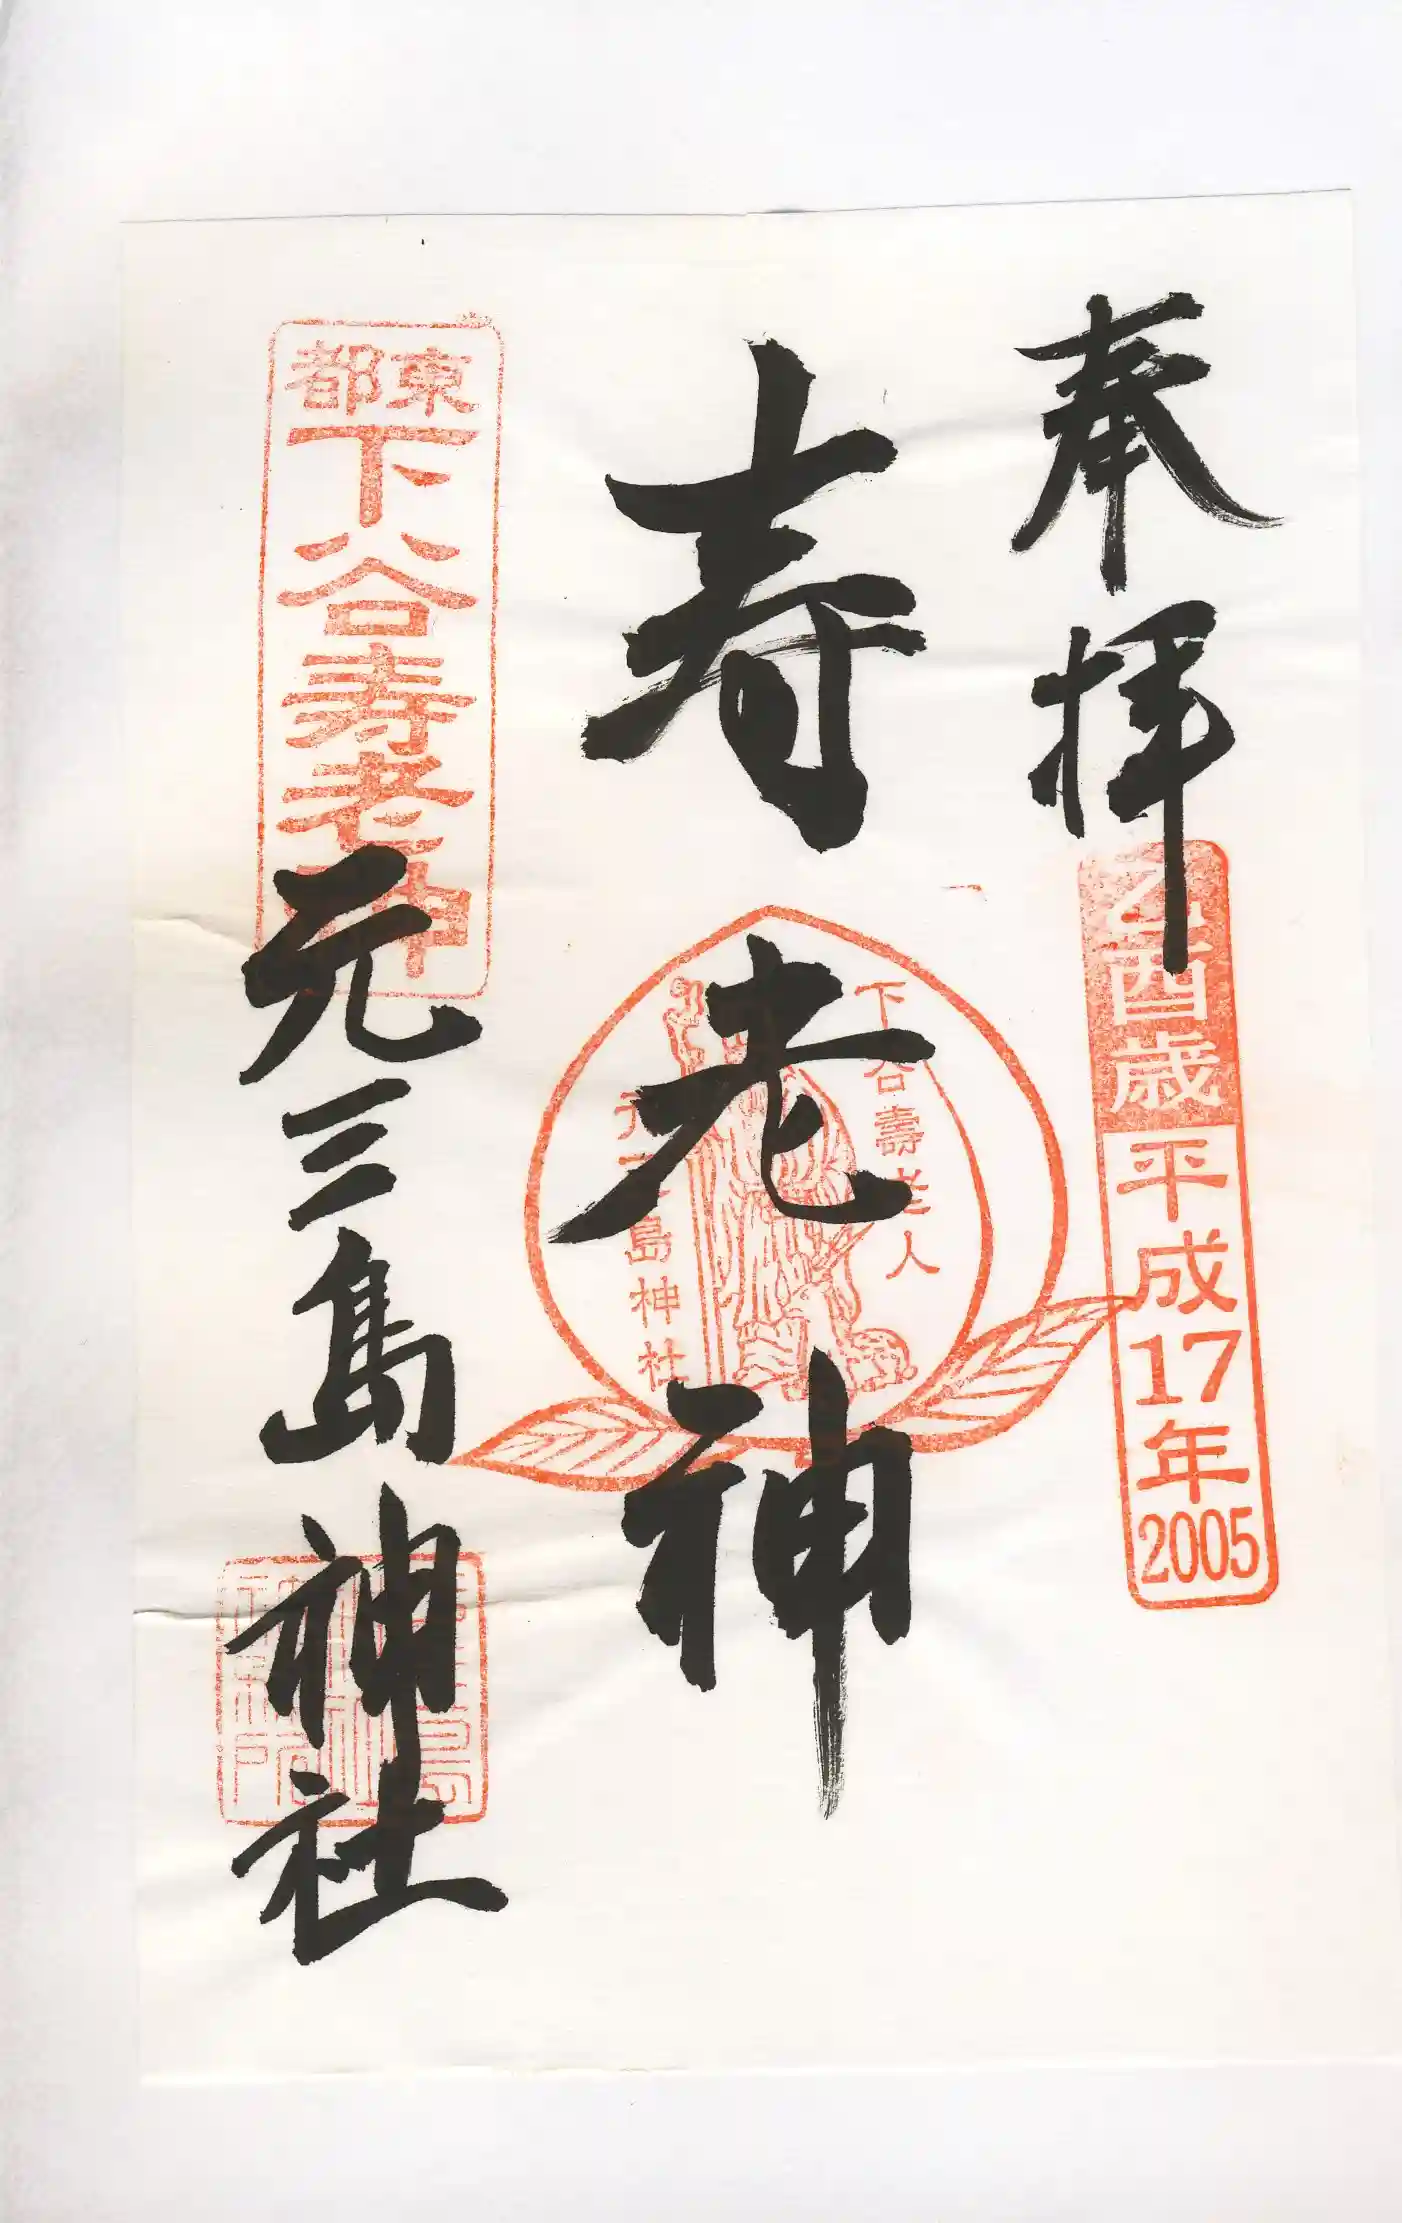 奉拝
乙酉歳平成17年
2005
寿老神
下谷壽老人
元三島神社
東都
下谷寿老神
元三島神社